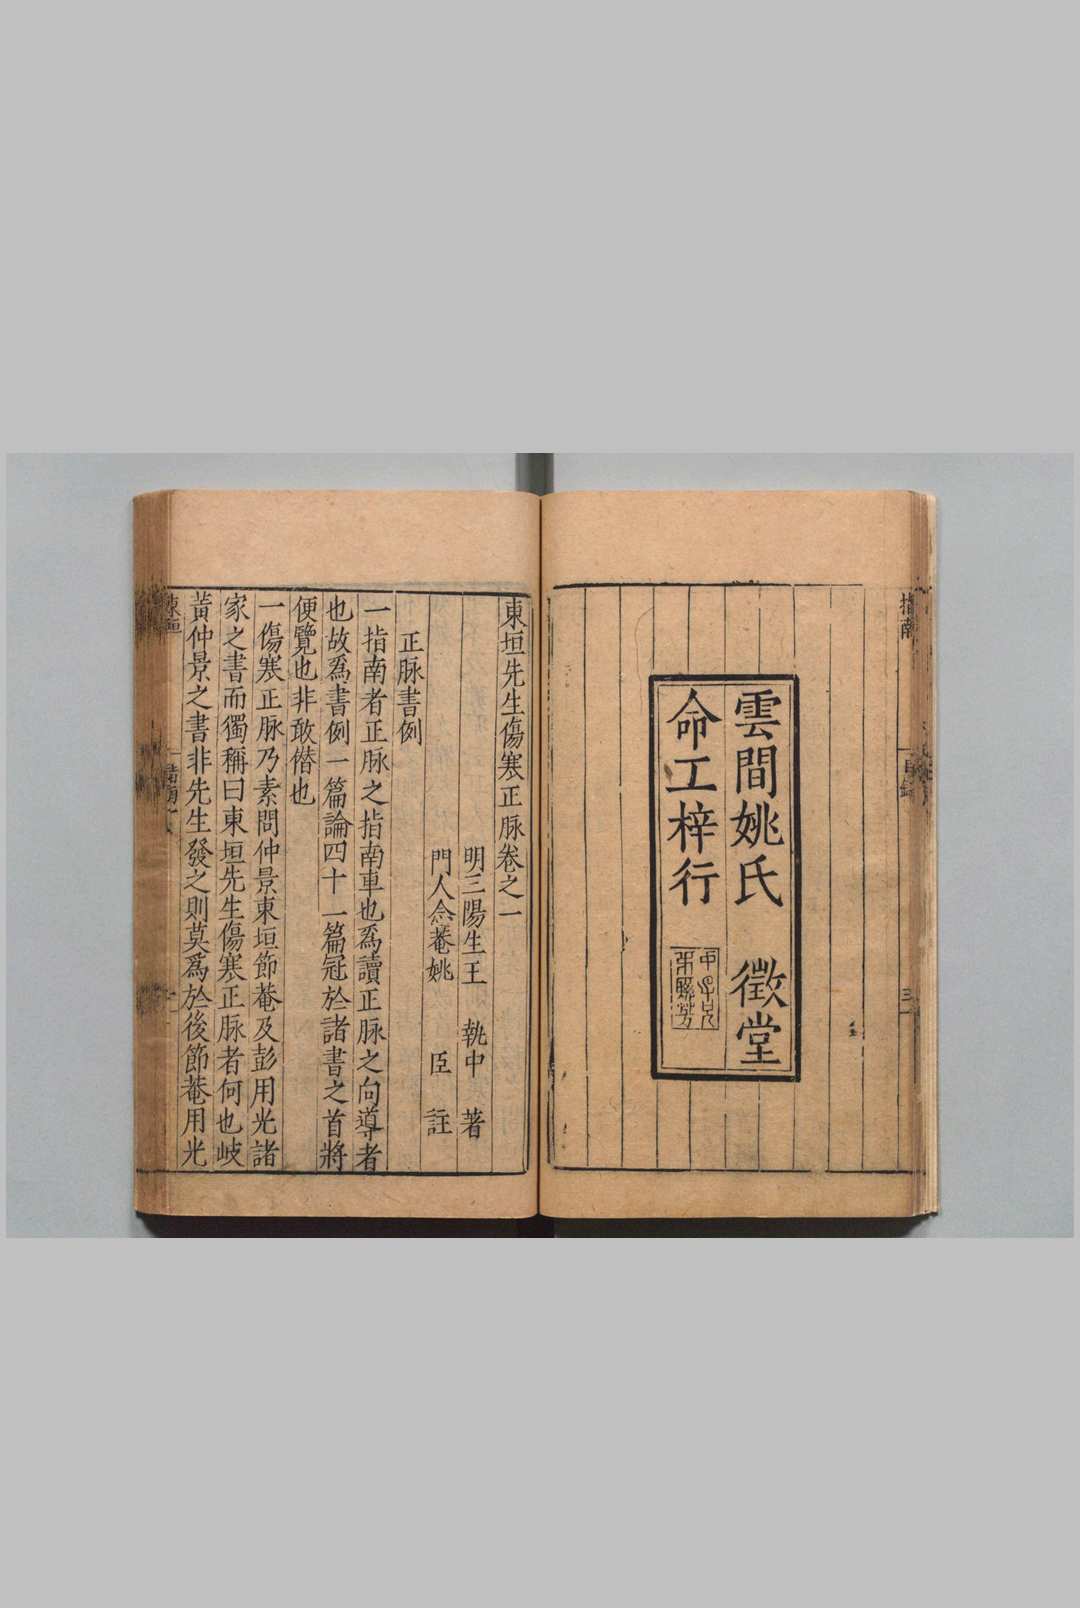 指南
目錄
三
雲間姚氏 徵堂
命工梓行
東垣先生傷寒正脉卷之一
明三陽生王 執中 著
門人僉菴姚 臣 註
正脉書例
一指南者正脉之指南車也爲讀正脉之向導者
也故爲書例一篇論四十一篇冠於諸書之首將
便覽也非敢僣也
一傷寒正脉乃素問仲景東垣節菴及彭用光諸
家之書而獨稱曰東垣先生傷寒正脉者何也岐
黃仲景之書非先生發之則莫爲於後節菴用光
東垣